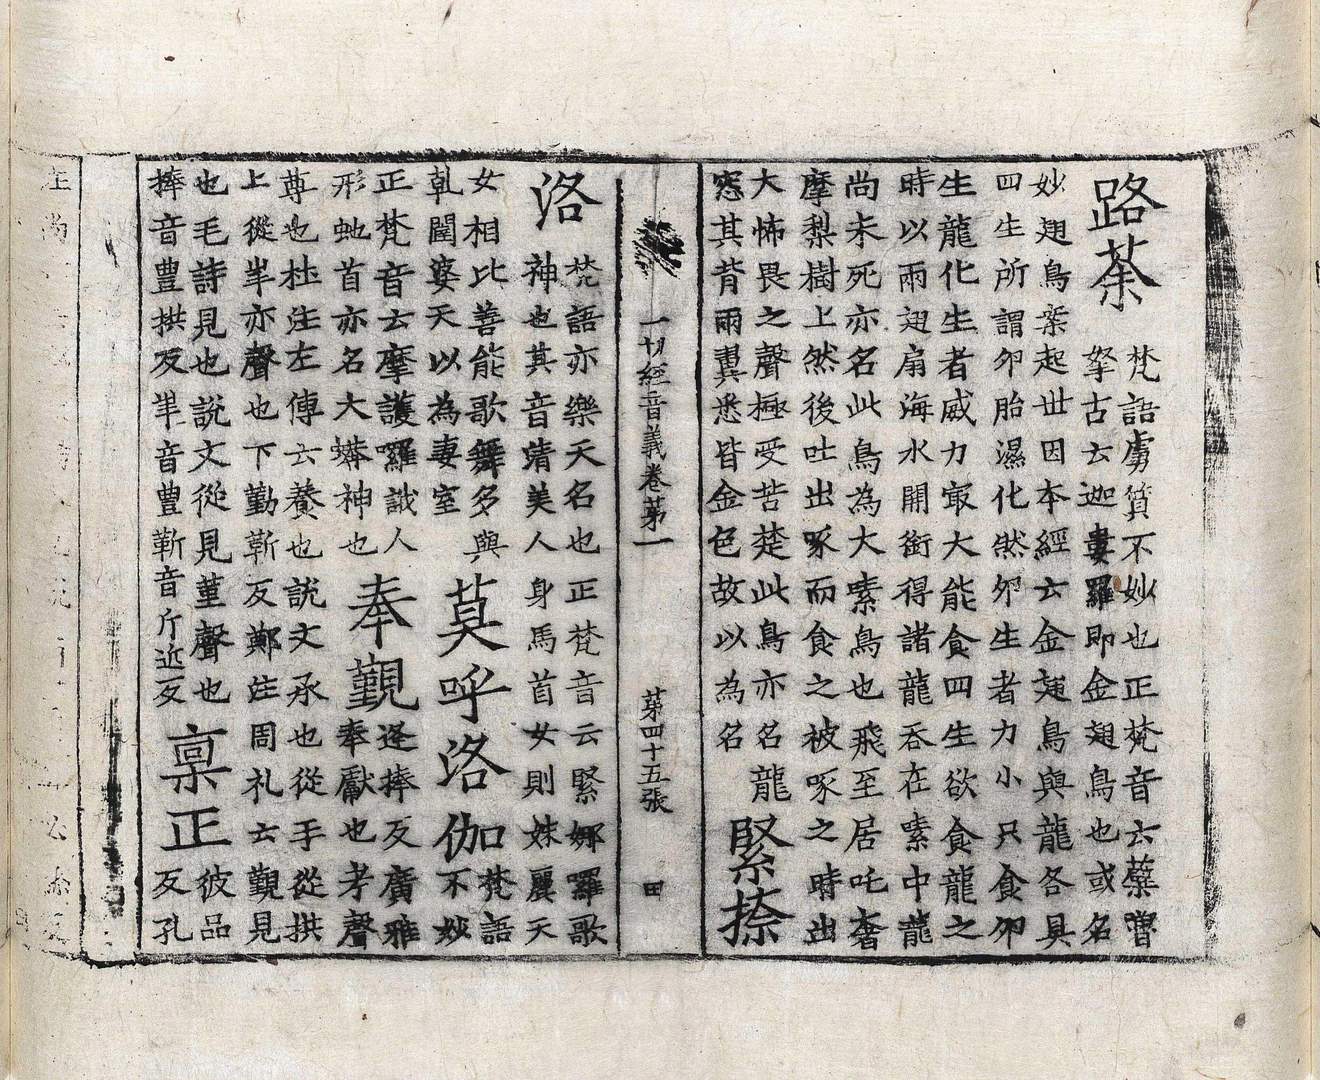 路荼
梵語虜質不妙也正梵音云蘗嚕
拏古云迦婁羅即金翅鳥也或名
妙翅鳥案起世因本經云金翅鳥與龍各具
四生所謂卵胎濕化然卵生者力小只食卵
生龍化生者威力㝡大能食四生欲食龍之
時以兩翅扇海水開銜得諸龍吞在嗉中龍
尚未死亦名此鳥為大嗉鳥也飛至居吒奢
摩梨樹上然後吐出啄而食之被啄之時出
大怖畏之聲極受苦楚此鳥亦名龍
怨其背兩翼悉皆金色故以為名
緊捺
一切經音義卷苐一 苐四十五張 田
洛
梵語亦樂天名也正梵音云緊娜囉歌
神也其音清美人身馬首女則姝麗天
女相比善能歌舞多與
乹闥婆天以為妻室
莫呼洛伽
梵語
不妙
正梵音云摩護囉誐人
形虵首亦名大蟒神也
奉覲
逢捧反廣雅
奉獻也考聲
尊也杜注左傳云養也說文承也從手從拱
上從丰亦聲也下勤靳反鄭注周礼云覲見
也毛詩見也說文從見堇聲也
捧音豊拱反丰音豊靳音斤近反
禀正
彼品
反孔